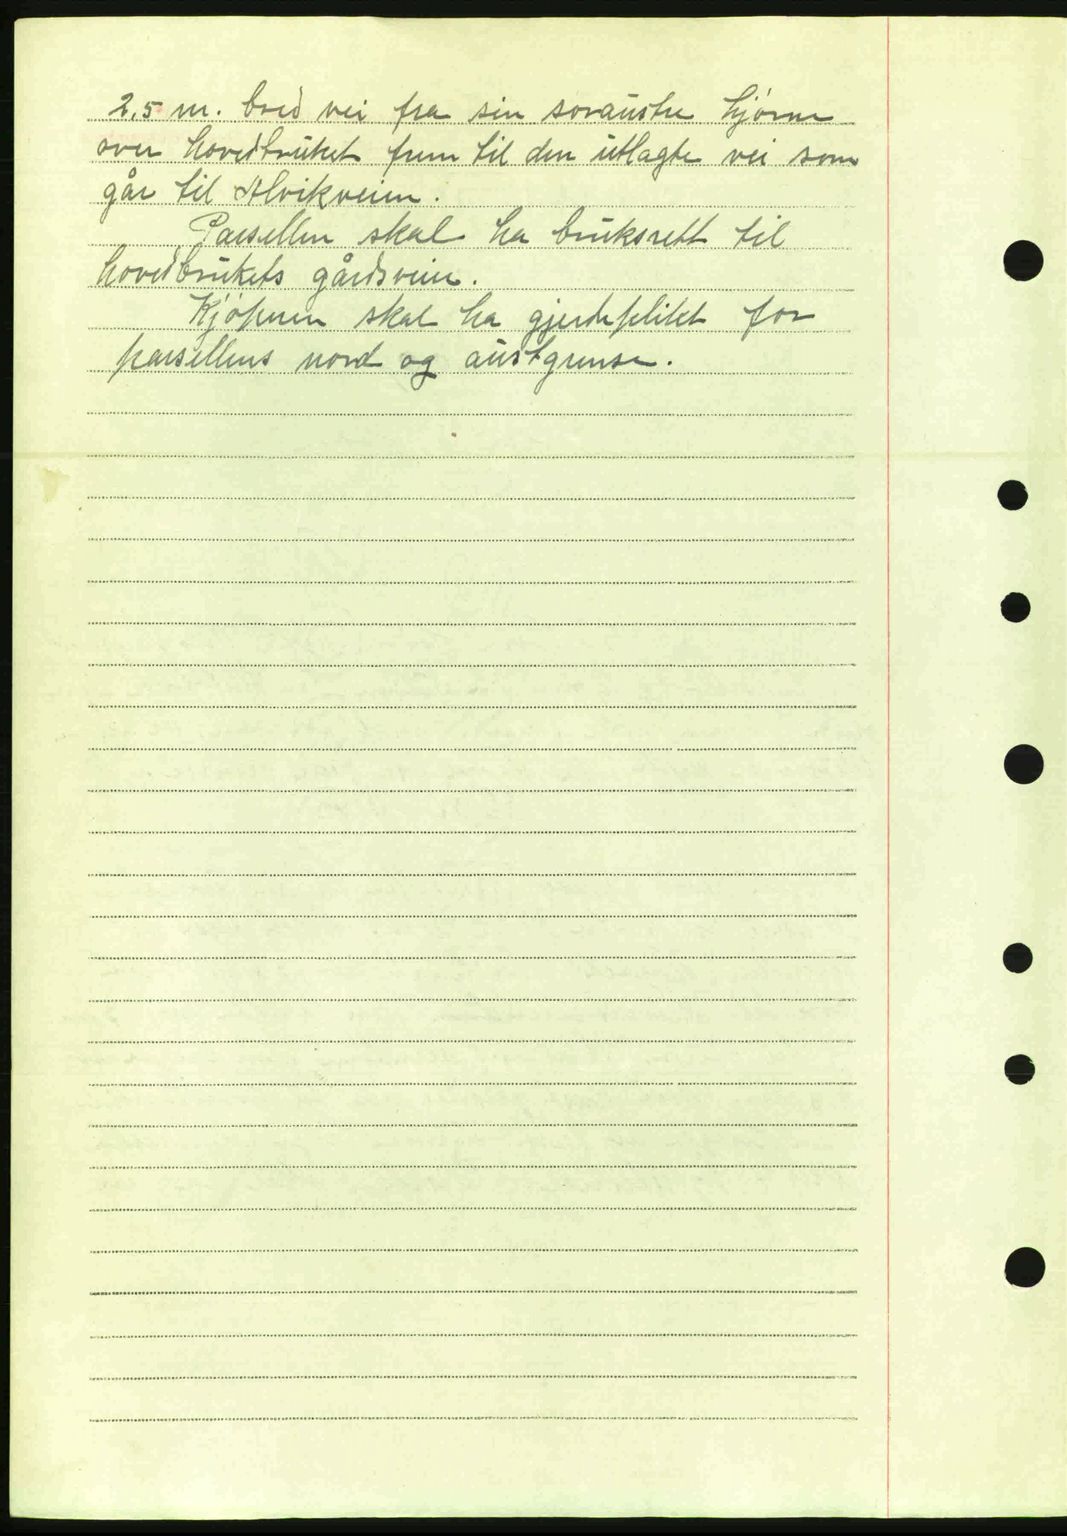 2,5 m. bred vei fra sin søraustre hjørne
over hovedbruket frem til den utlagte vei som
går til Alvikveien.
Parsellen skal ha bruksrett til
hovedbrukets gårdsveier.
Kjøperen skal ha gjerdeplikt for
parsellens nord og austgrense.